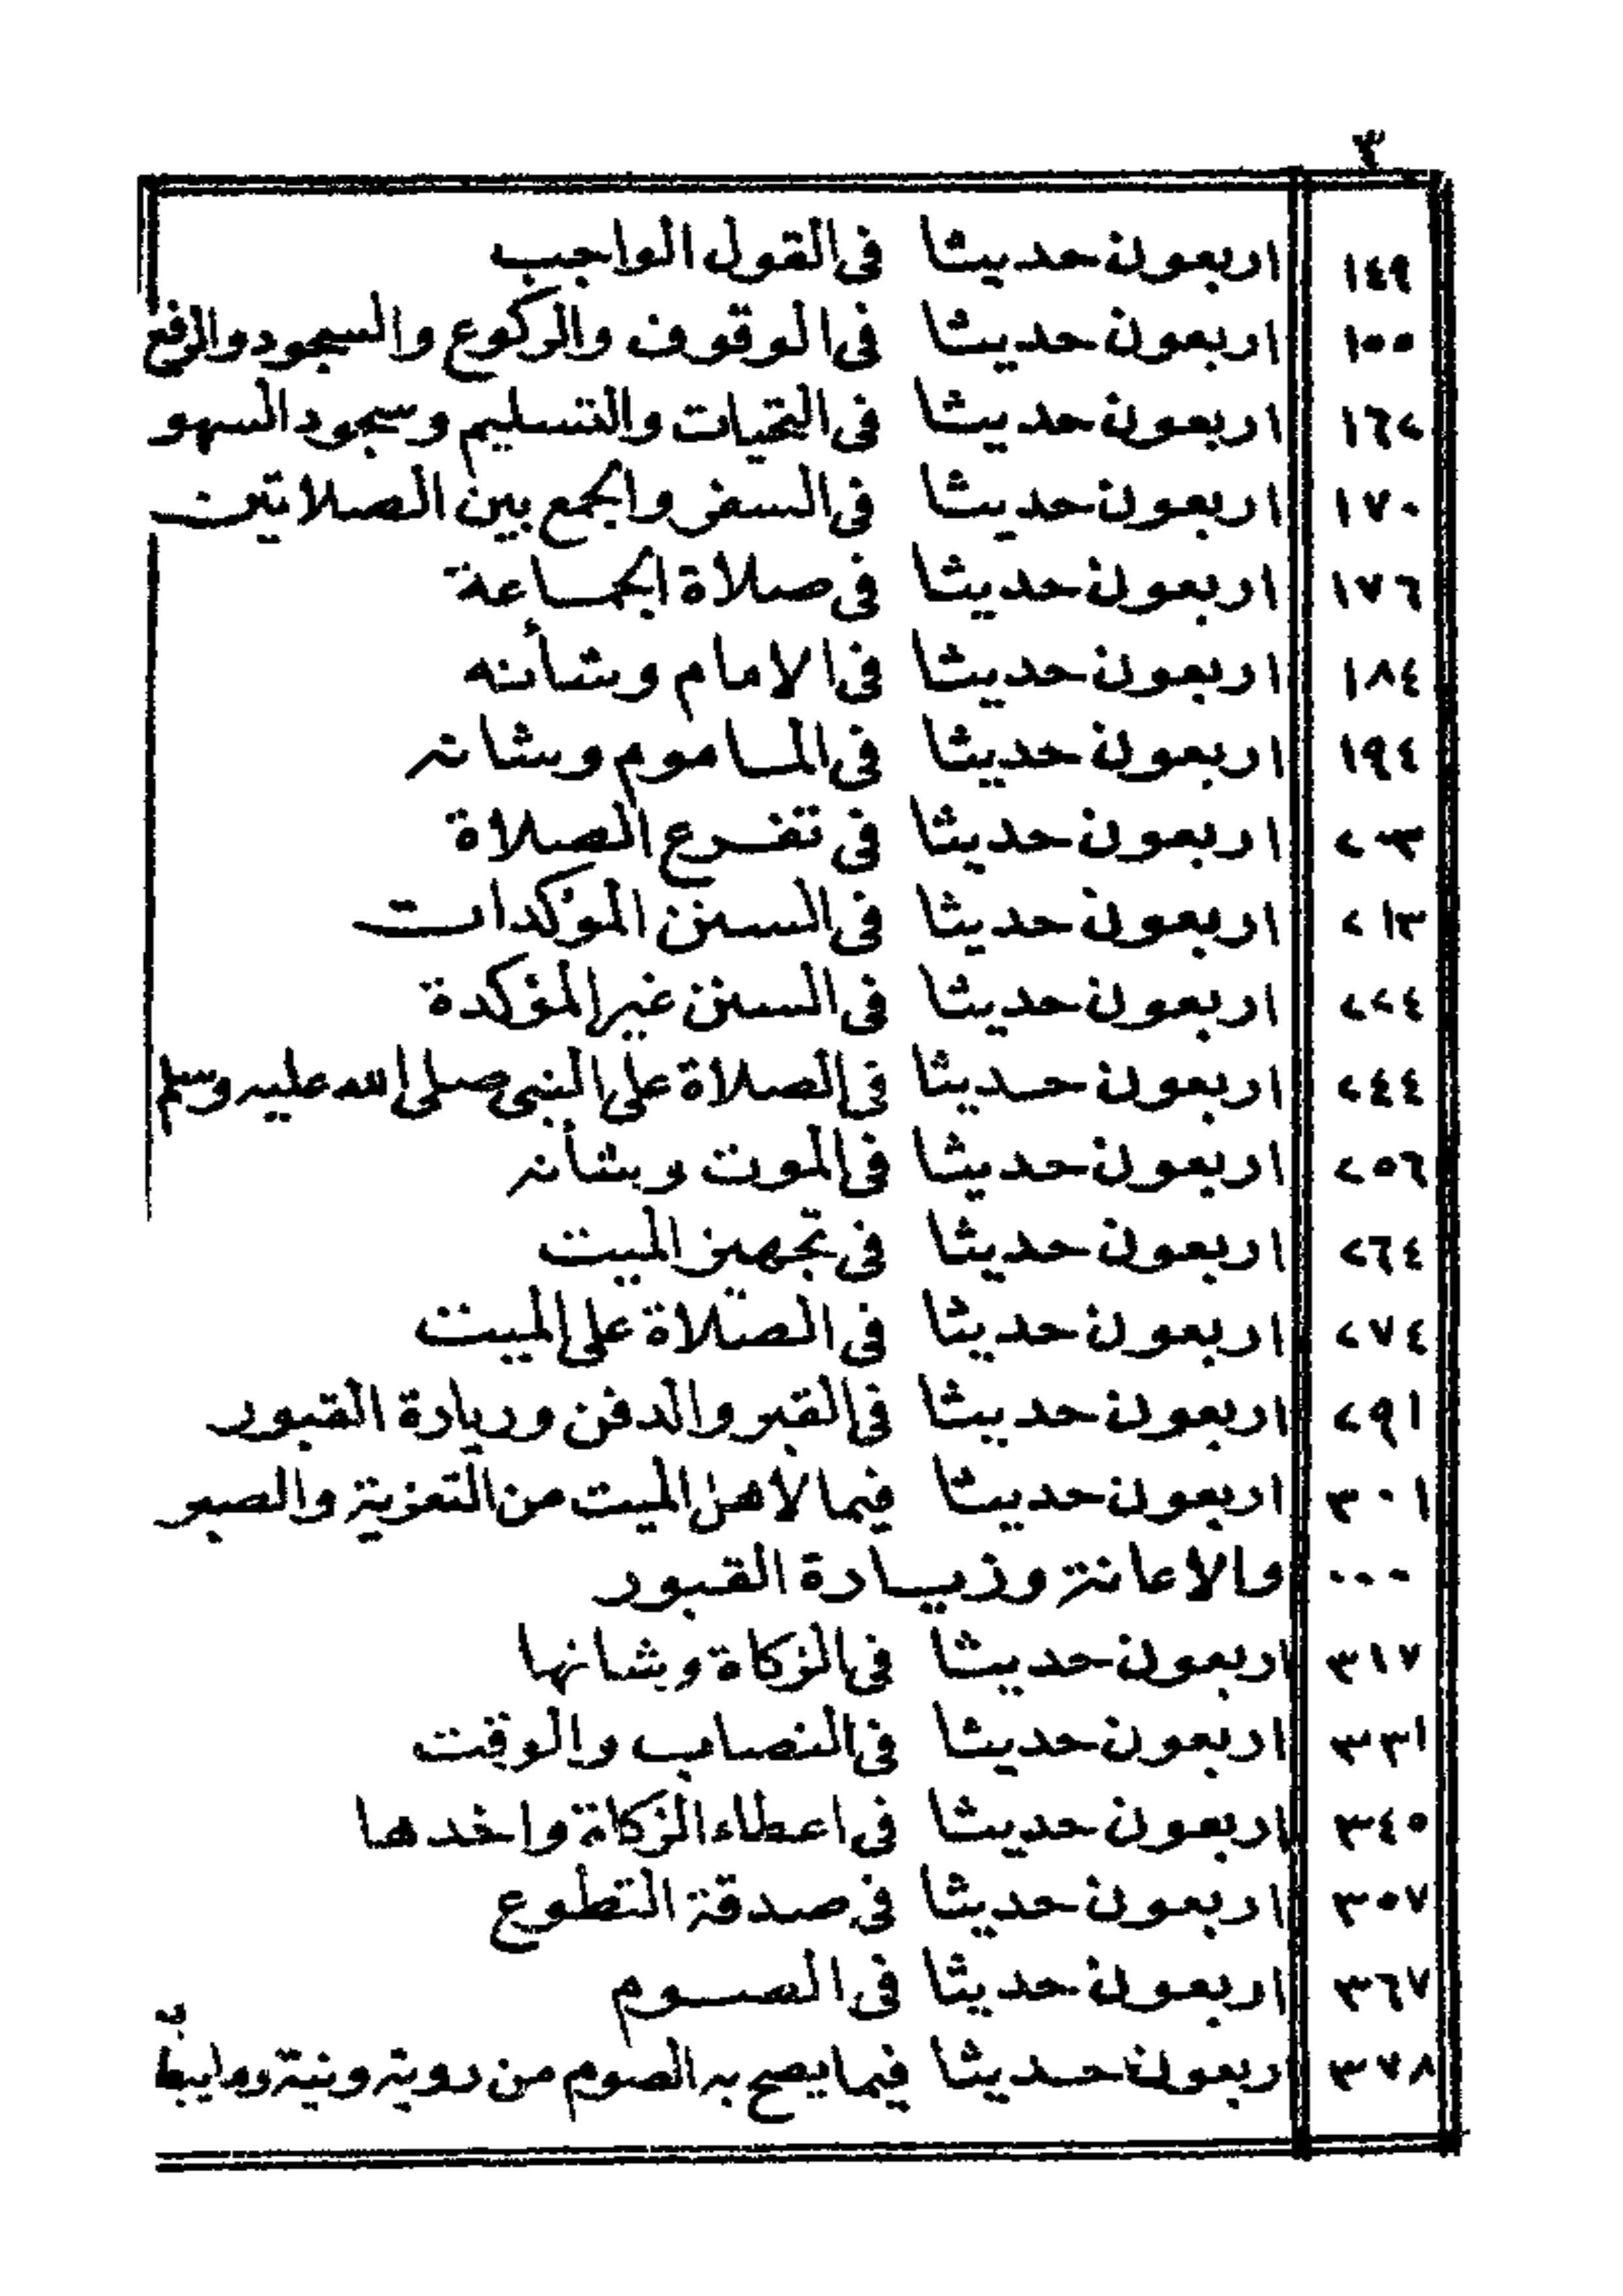 ٣
١٤٩ اربعون حديثا في القول الواجب
١٥٥ اربعون حديثا في الوقوف والركوع والسجود والرفع
١٦٢ اربعون حديثا في التحيات والتسليم وسجود السهو
١٧٠ اربعون حديثا في السفر والجمع بين الصلاتين
١٧٦ اربعون حديثا في صلاة الجماعة
١٨٤ اربعون حديثا في الامام وشأنه
١٩٤ اربعون حديثا في الماموم وشانه
٢٠٣ اربعون حديثا في تفرع الصلاة
٢١٣ اربعون حديثا في السنن المؤكدات
٢٢٤ اربعون حديثا في السنن غير المؤكدة
٢٤٤ اربعون حديثا في الصلاة على النبي صلى الله عليه وسلم
٢٥٦ اربعون حديثا في الموت وشأنه
٢٦٤ اربعون حديثا في تجهيز الميت
٢٧٤ اربعون حديثا في الصلاة على الميت
٢٩١ اربعون حديثا في القبر والدفن وريارة القبور
٣٠١ اربعون حديثا فيما لأهل الميت من التعزية والصبر
٠٠٠ والاعانة وزيارة القبور
٣١٧ اربعون حديثا في الزكاة وشانها
٣٣١ اربعون حديثا في النصاب والوقت
٣٤٥ اربعون حديثا في اعطاء الزكاة واخدها
٣٥٧ اربعون حديثا في صدقة التطوع
٣٦٧ اربعون حديثا في الصوم
٣٧٨ اربعون حديثا فيما يصح به الصوم من روية ونية